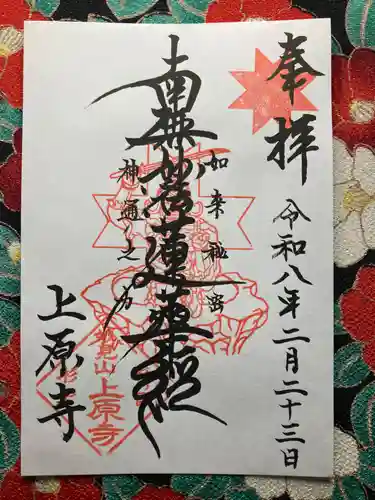 奉拝
令和八年二月二十三日
如来秘密
南無妙法蓮華経
神通之力
上原寺
見山
上原寺